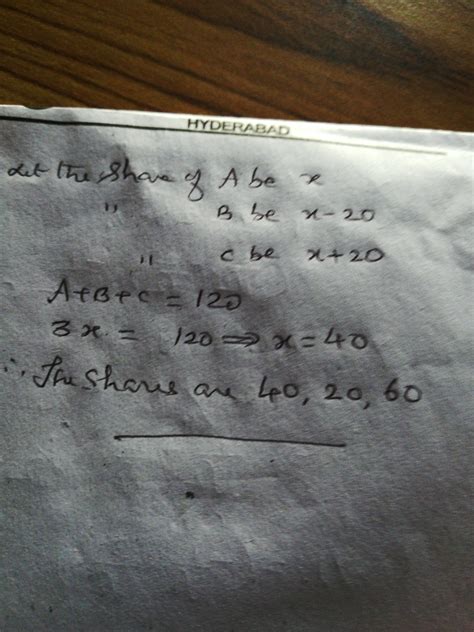 HYDERABAD
Let the share of A be x
" B be x-20
" C be x+20
A+B+C = 120
3x. = 120 ⇒ x = 40
∴ The shares are 40, 20, 60